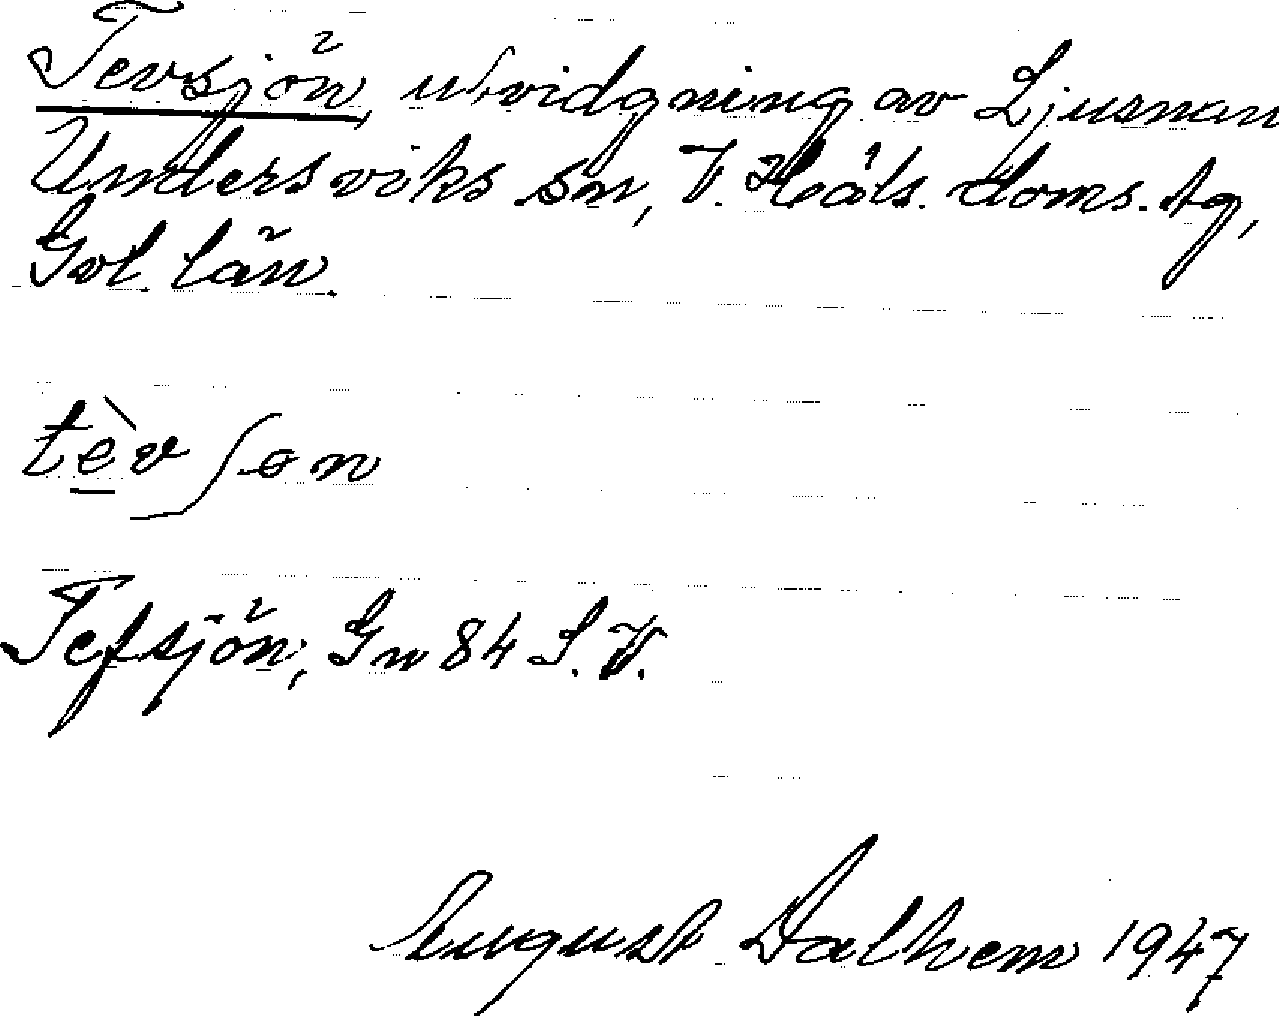 Tevsjön, utvidgning av Ljusnan
Undersviks sn, V. Häls. doms. tg,
Gvl. län.
tèvʃɵn
Tefsjön, Gn 84 S.V.
August Dalhem 1947